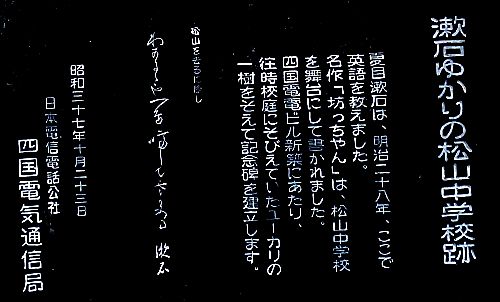 漱石ゆかりの松山中学校跡
夏目漱石は、明治二十八年、ここで
英語を教えました。
名作「坊っちゃん」は、松山中学校
を舞台にして書かれました。
四国電電ビル新築にあたり、
往時校庭にそびえていたユーカリの
一樹をそえて記念碑を建立します。
松山を去るに際し
わかるゝや一鳥啼て雲に入る 漱石
昭和三十七年十月二十三日
日本電信電話公社
四国電気通信局